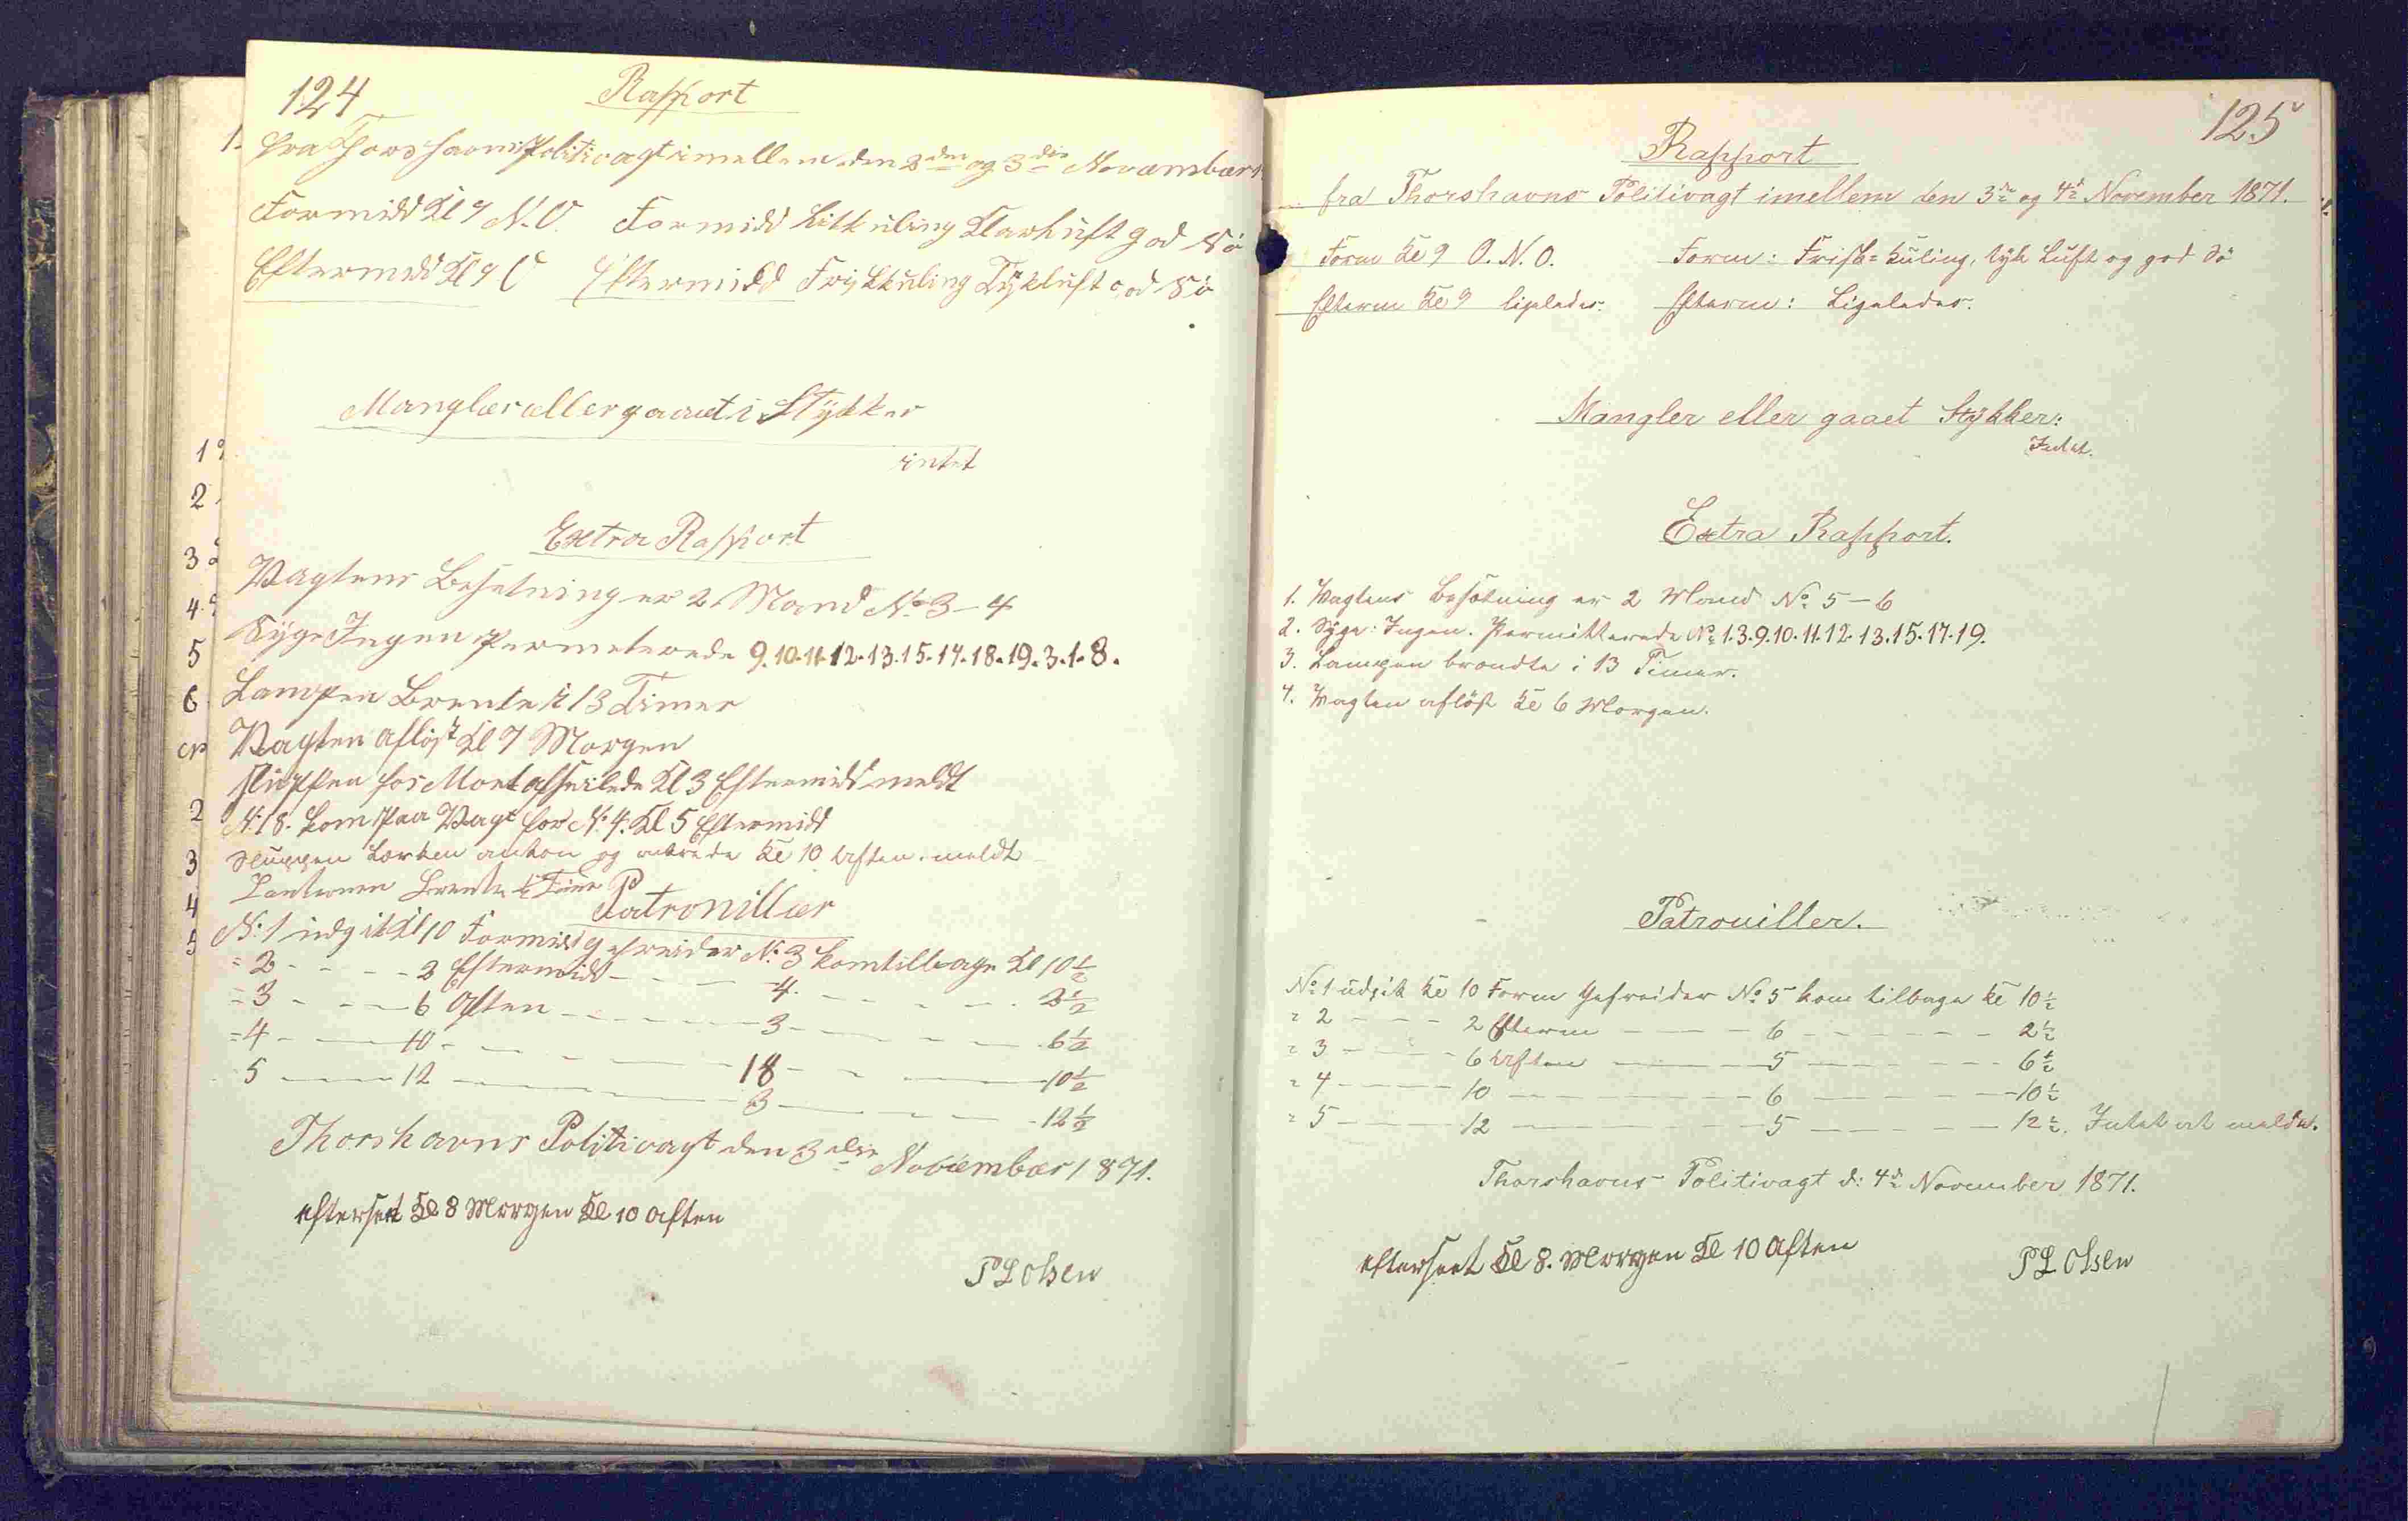 124
Rapport
fra Thorshavns Politivagt imellem den 2den og 3die November
Formidd Kl 9 N.O. Formidd Litkuling Klarluft god Sö
Eftermidd Kl 9 O Eftermidd Friskkuling Tÿkluft god Sö
Mangler eller gaaet i Stÿkker
intet
Extra Rapport
Vagtens Besetning er 2 Mand No 3-4
Sÿge Ingen permeterede 9.10.11.12.13.15.17.18.19.3.1.8.
Lampen Brente i 13 Timer
Vagten aflöst Kl 7 Morgen
Kl 3 Eftermidd meldt
N: 18. kom paa Vagt for N: 4. Kl 5 Eftermidd
og Kl 10 Aften meldt
Lanternen Brente
Patrouiller
N: 1 udgik Kl 10 Formidd gefreider N: 3 kom tilbage Kl 10½
= 2 - - - - 2 Eftermidd - - - 4. - - - - 2½
= 3 - - - 6 Aften - - - - 3 - - - - 6½
= 4 - - - 10 - - - - 18 - - - - 10½
5 - - - 12 - - - - 3 - - - - 12½
Thorshavns Politivagt den 3die November 1871.
efterseet Kl 8 Morgen Kl 10 Aften
P L Olsen
125
Rapport
fra Thorshavns Politivagt imellem den 3de og 4de November 1871.
Form Kl 9 O.N.O. Form: Frisk=Kuling, tyk Luft og god Sö
Efterm Kl 9 ligeledes. Efterm: Ligeledes.
Mangler eller gaaet Stykker:
Intet.
Extra Rapport.
1. Vagtens Besætning er 2 Mand No 5-6
2. Syge: Ingen. Permitterede No 1.3.9.10.11.12.13.15.17.19.
3. Lampen brændte i 13 Timer.
4. Vagten aflöst Kl 6 Morgen.
Patrouiller.
No 1 udgik Kl 10 Form Gefreider No 5 kom tilbage Kl 10½
" 2 - - - - 2 Efterm - - - - 6 - - - - 2½
" 3 - - - - 6 Aften - - - - 5 - - - - 6½
" 4 - - - - 10 - - - - 6 - - - - 10½
" 5 - - - - 12 - - - - 5 - - - - 12½. Intet at melde.
Thorshavns Politivagt d: 4de November 1871.
efterseet Kl 8. Morgen Kl 10 Aften
P L Olsen